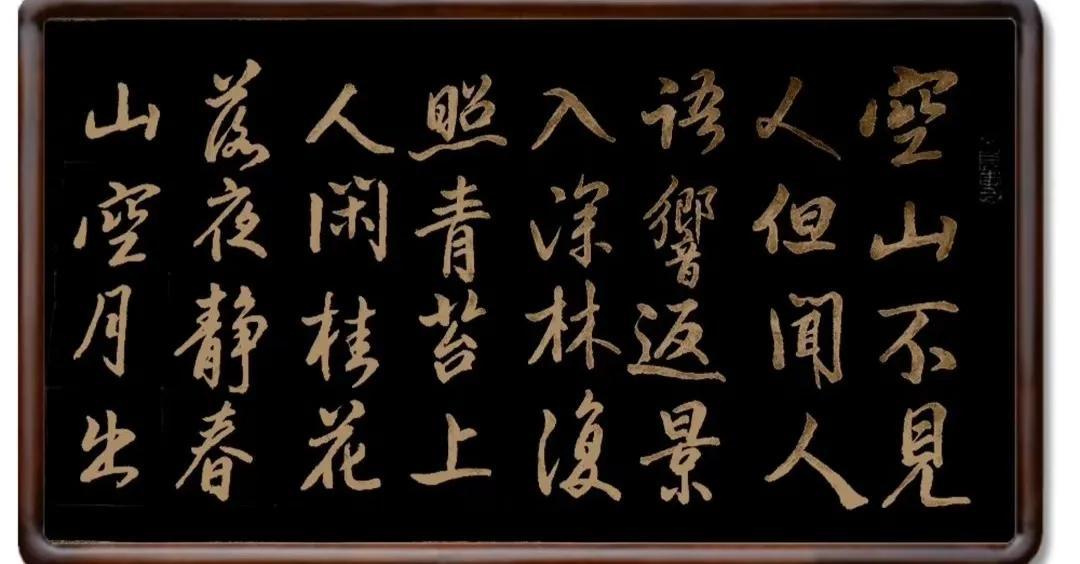 空山不見
人但聞人
語響返景
入深林復
照青苔上
人閑桂花
落夜靜春
山空月出